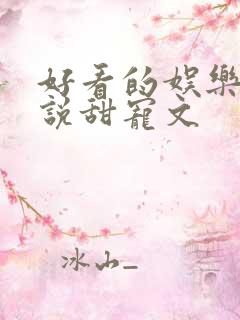 好看的娱樂
說甜寵文
冰山_